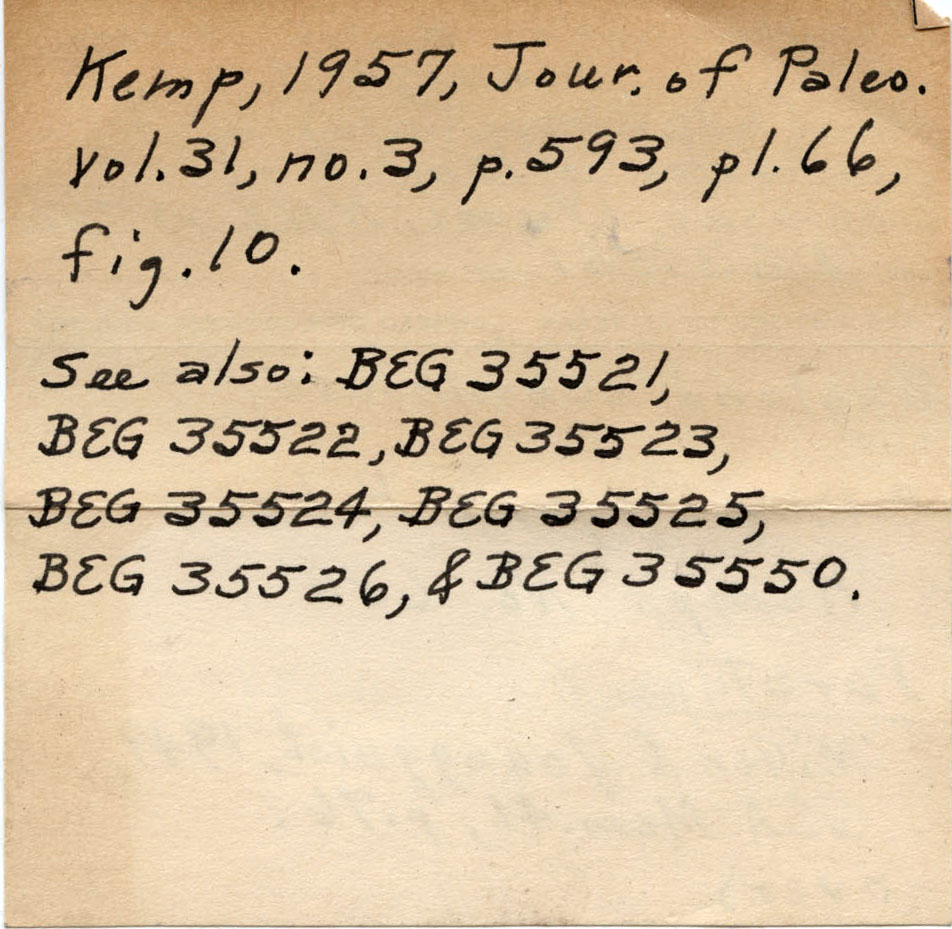 Kemp, 1957, Jour. of Paleo.
vol.31, no.3, p.593, pl.66,
fig.10.
See also: BEG 35521,
BEG 35522, BEG 35523,
BEG 35524, BEG 35525,
BEG 35526, & BEG 35550.